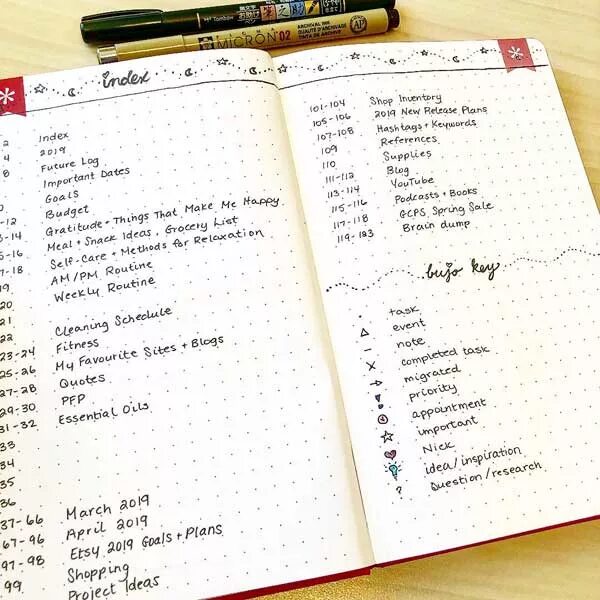 Tombow
MICRON 02
ARCHIVAL INK
QUALITÉ D'ARCHIVAGE
TINTA DE ARCHIVE
AP
index
2 Index
4 2019
8 Future Log
Important Dates
0 Goals
-12 Budget
3-14 Gratitude + Things That Make Me Happy
5-16 Meal + Snack Ideas, Grocery List
7-18 Self-Care + Methods for Relaxation
19 AM/PM Routine
20 Weekly Routine
21 Cleaning Schedule
23-24 Fitness
25-26 My Favourite Sites + Blogs
27-28 Quotes
29-30 PFP
31-32 Essential Oils
33
34
35
36
37-66 March 2019
67-96 April 2019
97-98 Etsy 2019 Goals + Plans
99 Shopping
Project Ideas
101-104 Shop Inventory
105-106 2019 New Release Plans
107-108 Hashtags + Keywords
109 References
110 Supplies
111-112 Blog
113-114 YouTube
115-116 Podcasts + Books
117-118 GCPS Spring Sale
119-123 Brain dump
bujo key
• task
△ event
– note
× completed task
→ migrated
! priority
appointment
☆ important
♥ Nick
idea/inspiration
? Question/research